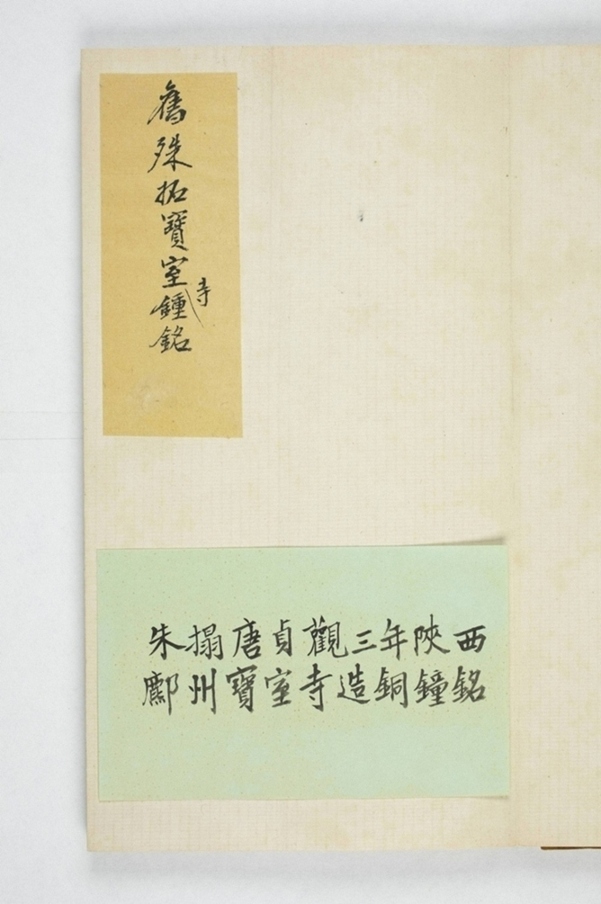 舊殊拓寶室寺鍾銘
朱搨唐貞觀三年陝西
鄜州寶室寺造銅鐘銘